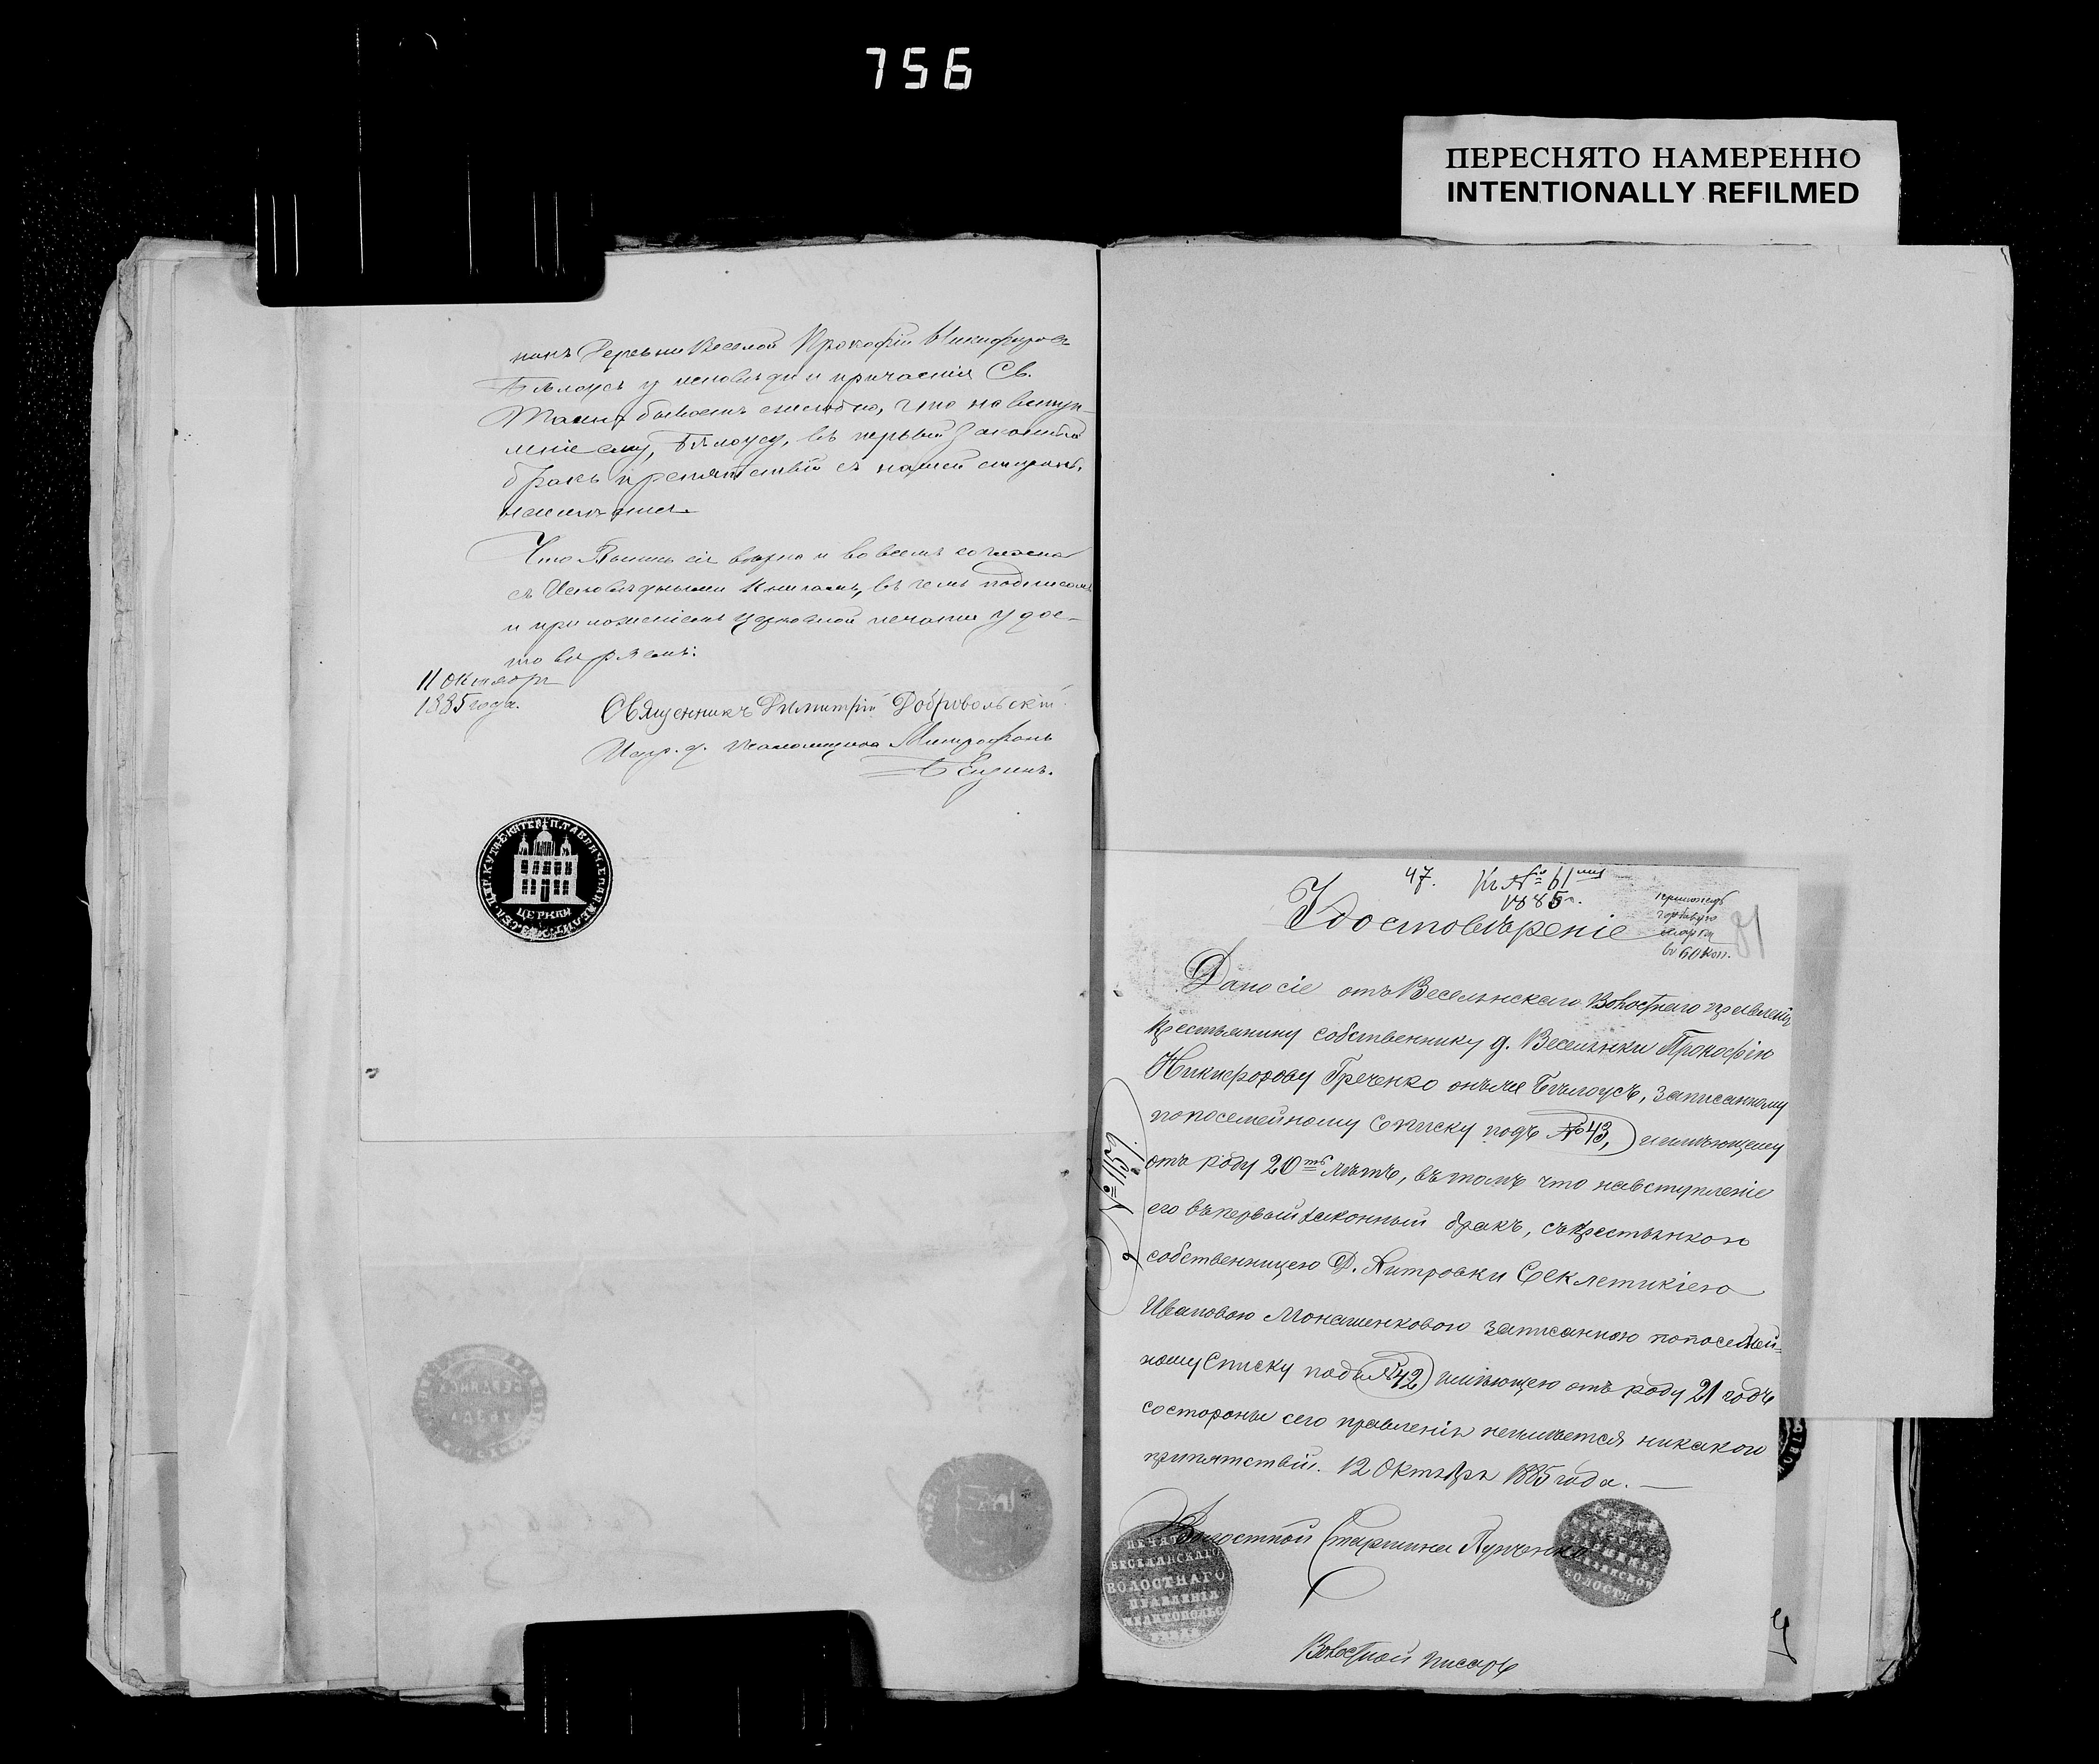 756
ПЕРЕСНЯТО НАМЕРЕННО
INTENTIONALLY REFILMED
никъ Деревни Веселой Прокофій Никифоровъ
Бѣлоусъ у исповѣди и причастія Св.
Таинъ бываетъ ежегодно, что на вступ-
леніе ему, Бѣлоусу, въ первый законный
бракъ препятствій съ нашей стороны
Что Выпись сія вѣрна и во всемъ согласна
съ Исповѣдными книгами, въ чемъ подписомъ
и приложеніемъ церковной печати удос-
товѣряемъ:
11 октября
1885 года.
Священникъ Димитрій Добровольскій
Испр. д. псаломщика Митрофанъ
ЦЕРКВИ
47. Къ № 61
1885 г.
Удостовѣреніе
гербовую
марку
въ 60 коп.
Дано сіе отъ Веселянскаго Волостнаго правленія
крестьянину собственнику д. Веселянки Прокофію
Никифорову Греченко онъ же Бѣлоусъ, записанному
по посемейному списку подъ № 43, имѣющему
отъ роду 20ть лѣтъ, въ томъ что на вступленіе
его въ первый законный бракъ, съ крестьянкою
собственницею Д. Янтровки Секлетикіею
Ивановою Монашенковою записанною по посемей-
ному списку подъ № 42 имѣющею отъ роду 21 годъ
со стороны сего правленія неимѣется никакой
припятствій. 12 Октября 1885 года. —
Волостной Старшина Лупченко
ПЕЧАТЬ
ВЕСЕЛЯНСКАГО
ВОЛОСТНАГО
ПРАВЛЕНІЯ
МЕЛИТОПОЛЬС
УѢЗДА
ВОЛОСТИ
Волостной писарь